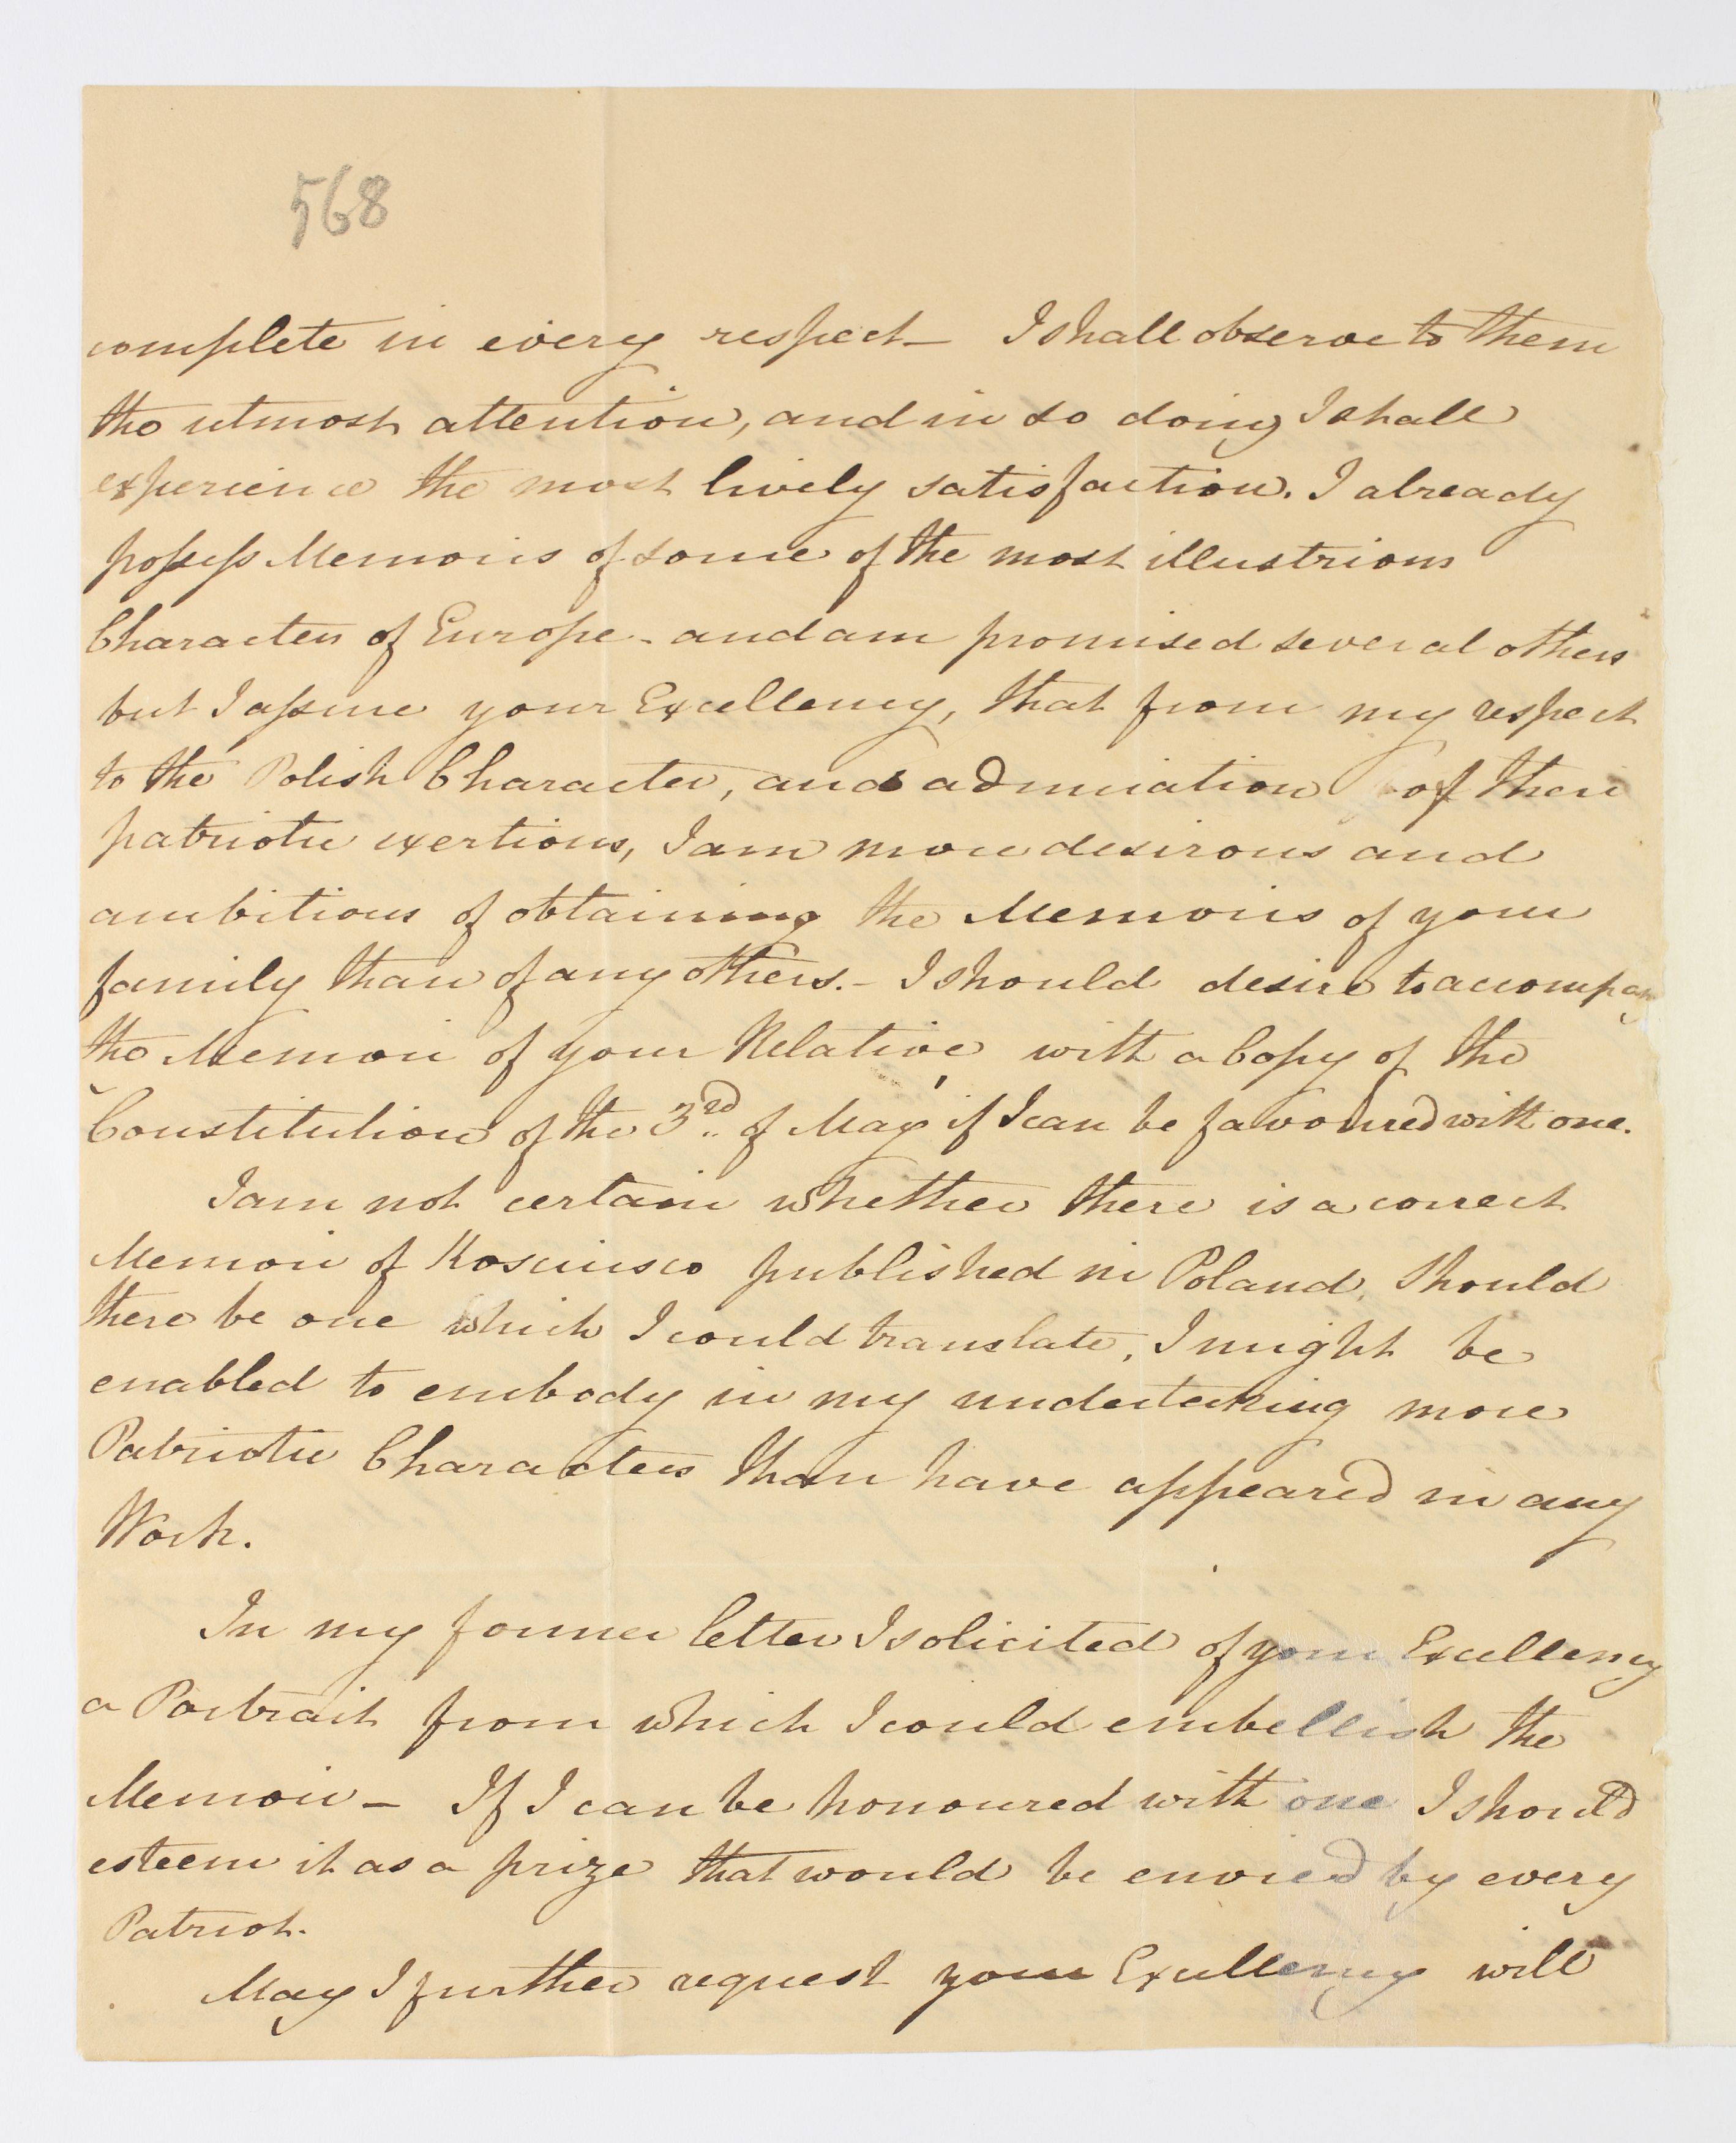 568
complete in every respect — I shall observe to them
the utmost attention, and in so doing I shall
experience the most lively satisfaction. I already
possess Memoirs of some of the most illustrious
Characters of Europe - and am promised several others
but I assure your Excellency, that from my respect
to the Polish Character, and admiration of their
patriotic exertions, I am more desirous and
ambitious of obtaining the Memoirs of your
family than of any others. - I should desire to accompany
the Memoir of your Relative with a Copy of the
Constitution of the 3rd of May if I can be favoured with one.
I am not certain whether there is a correct
Memoir of Kosciusco published in Poland, Should
there be one which I could translate, I might be
enabled to embody in my undertaking more
Patriotic Characters than have appeared in any
Work.
In my former letter I solicited of your Excellency
a Portrait from which I could embellish the
Memoir — If I can be honoured with one I should
esteem it as a prize that would be envied by every
Patriot.
May I further request your Excellency will